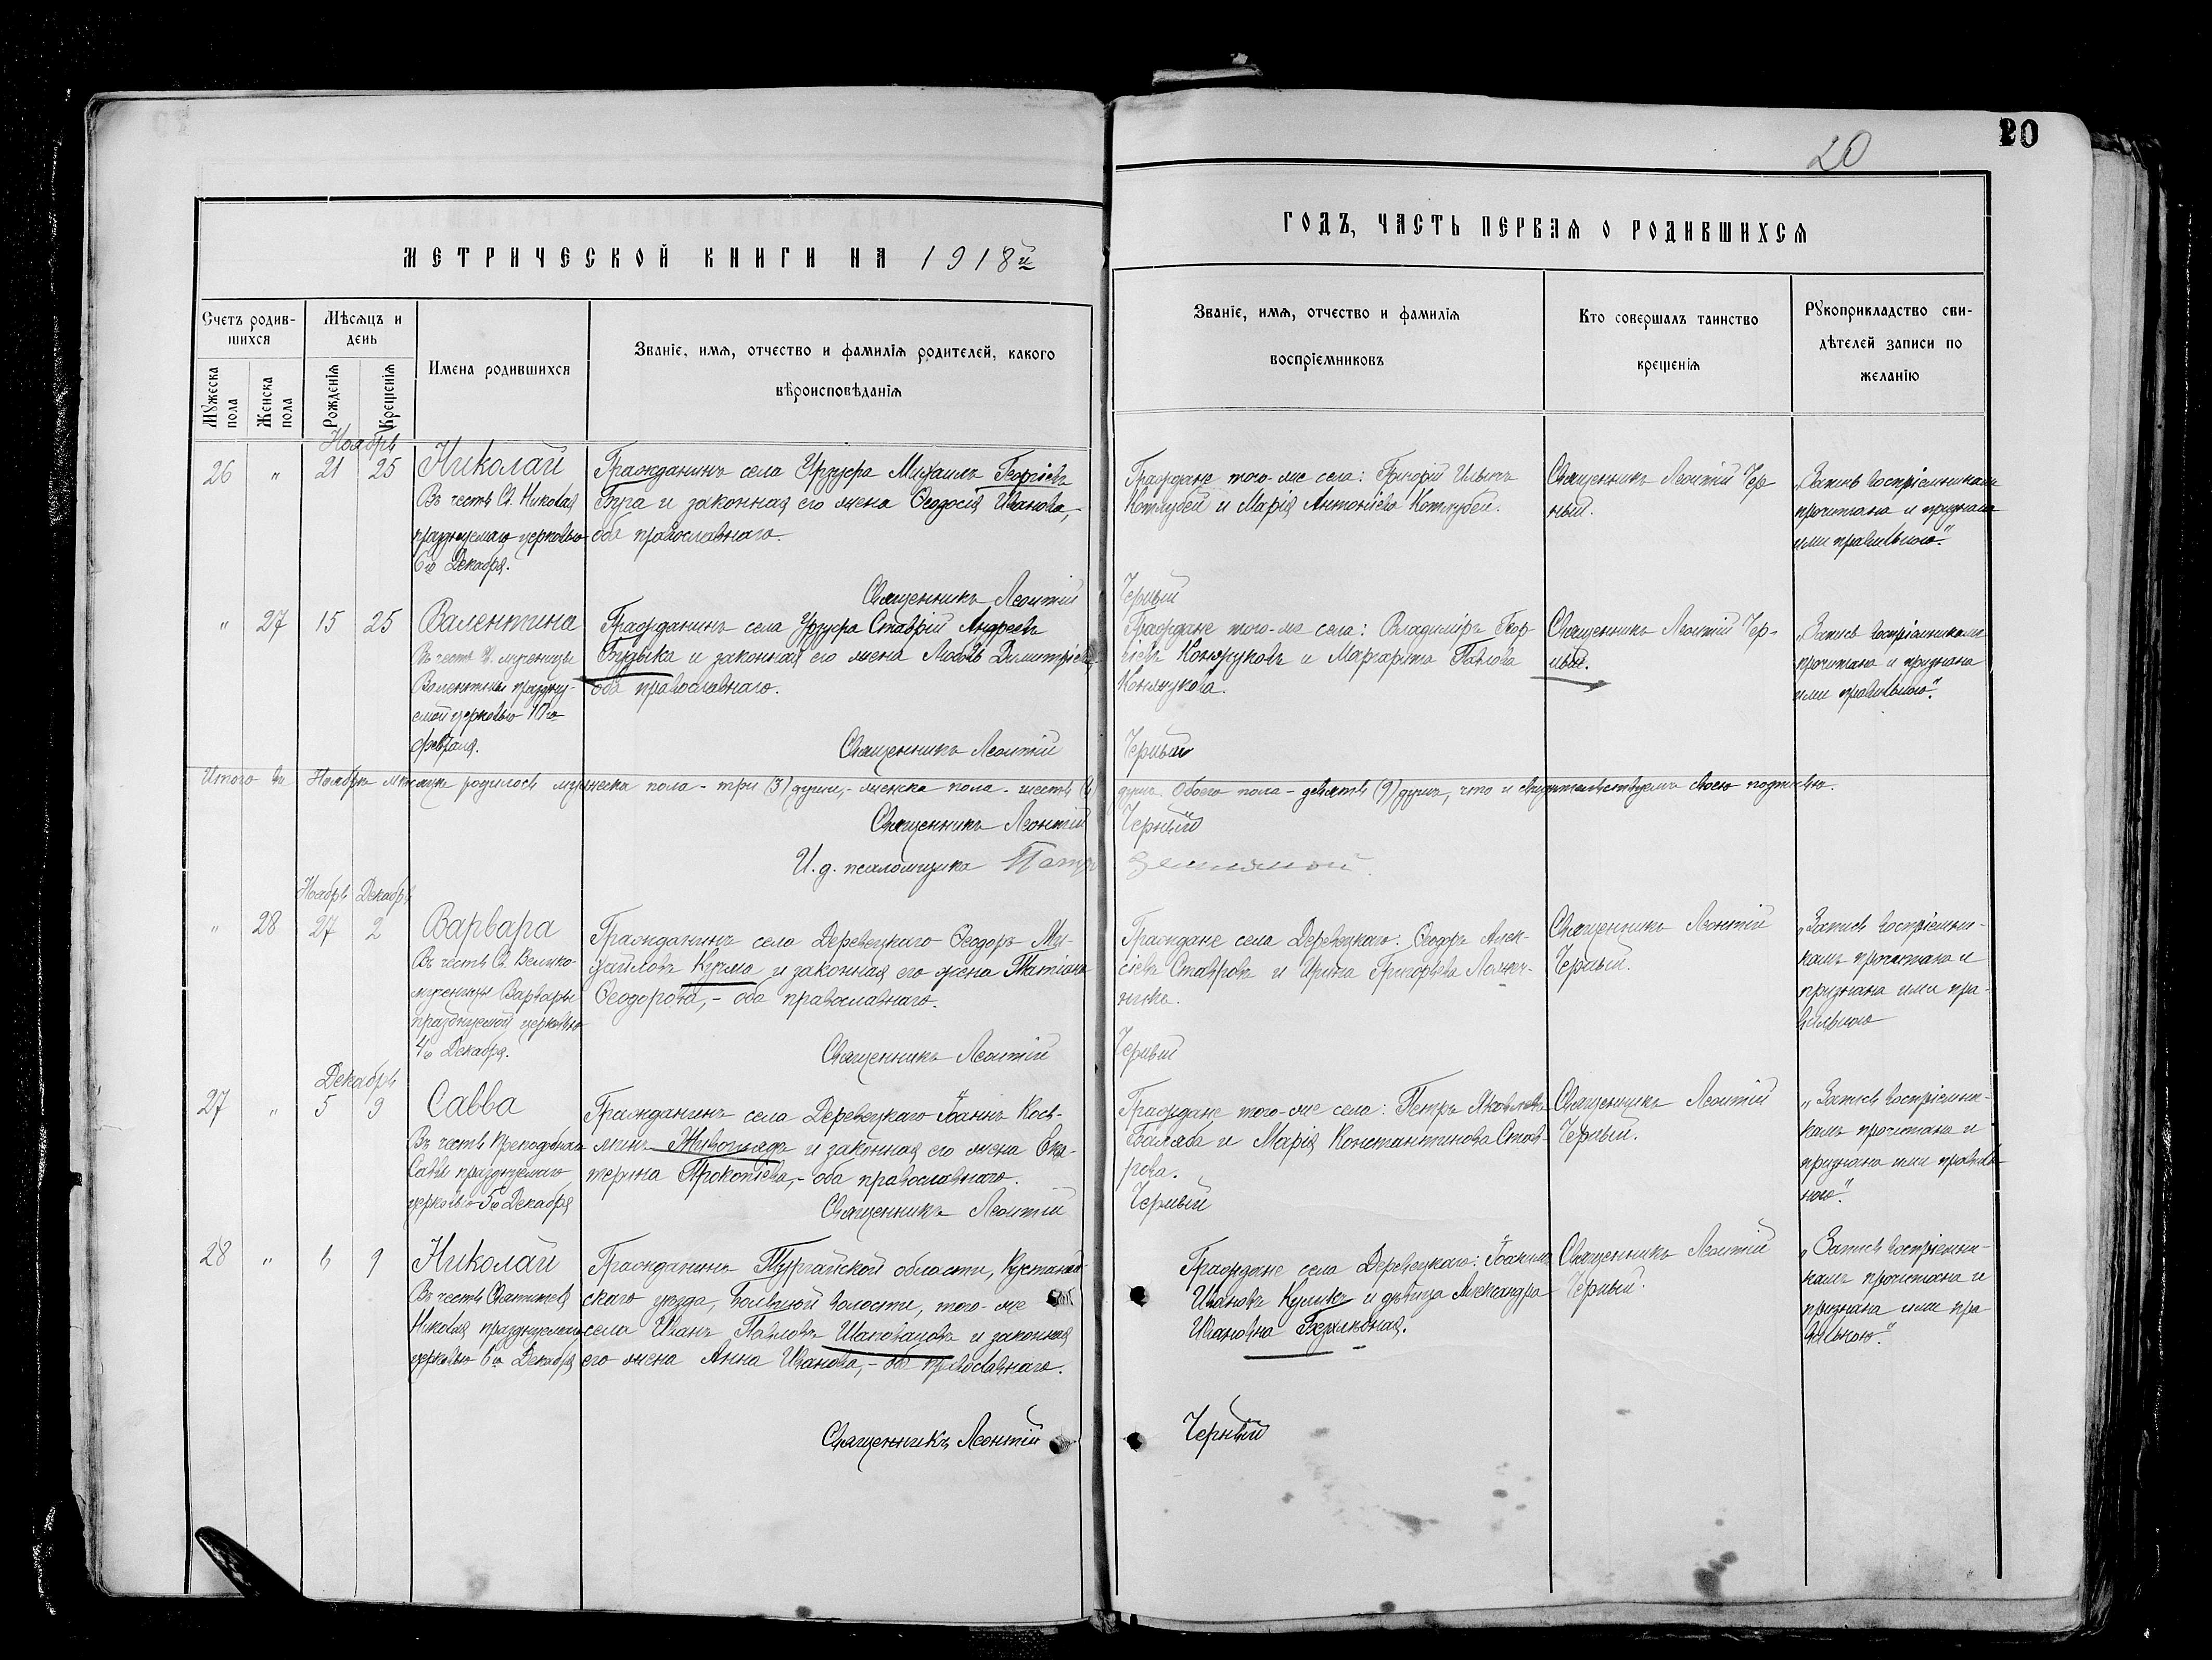 20
20
МЕТРИЧЕСКОЙ КНИГИ НА 1918й
ГОДЪ, ЧАСТЬ ПЕРВАЯ О РОДИВШИХСЯ
Счетъ родив-
шихся
Мужеска пола
Женска пола
Мѣсяцъ и
день
Рожденія
Крещенія
Имена родившихся
Званіе, имя, отчество и фамилія родителей, какого
вѣроисповѣданія
Званіе, имя, отчество и фамилія
воспріемниковъ
Кто совершалъ таинство
крещенія
Рукоприкладство сви-
дѣтелей записи по
желанію
Ноябрь
26 " 21 25
Николай
Въ честь Св. Николая
празднуемаго церковью
6го Декабря.
Гражданинъ села Урзуфа Михаилъ Георгіевъ
и законная его жена Ѳеодосія Иванова,
оба православнаго.
Священникъ Леонтій
Граждане того-же села: Григорій Ильинъ
Кочубей и Марія Антоніева Кочубей.
Черный
Священникъ Леонтій Чер-
ный.
„Запись воспріемниками
прочитана и признана
ими правильною."
" 27 15 25
Валентина
Въ честь Св. мученицы
Валентины праздну-
емой церковью 10го
февраля.
Гражданинъ села Урзуфа Ставрій Андреевъ
Будыка и законная его жена Любовь Димитріева,
оба православнаго.
Священникъ Леонтій
Граждане того-же села: Владиміръ Геор-
гіевъ Конжуковъ и Маргарита Павлова
Конжукова.
Черный
Священникъ Леонтій Чер-
ный.
„Запись воспріемниками
прочитана и признана
ими правильною".
Итого въ Ноябрѣ мѣсяцѣ родилось мужеска пола - три (3) души, - женска пола - шесть (6)
душъ. Обоего пола - девять (9) душъ, что и свидѣтельствуемъ своею подписью.
Священникъ Леонтій
Черный
И. д. псаломщика Петръ
Ноябрь Декабрь
" 28 27 2
Варвара
Въ честь Св. Велико-
мученицы Варвары
празднуемой церковью
4го Декабря.
Гражданинъ села Деревецкаго Ѳеодоръ Ми-
хайловъ Курма и законная его жена Татіана
Ѳеодорова, - оба православнаго.
Священникъ Леонтій
Граждане села Деревецкаго: Ѳеодоръ Алек-
сіевъ Ставровъ и Ирина Григорьева
Черный
Священникъ Леонтій
Черный.
„Запись воспріемни-
камъ прочитана и
признана ими пра-
вильною
Декабрь
27 " 5 9
Савва
Въ честь Преподобнаго
Саввы празднуемаго
церковью 5го Декабря
Гражданинъ села Деревецкаго Іоаннъ Кось-
минъ Живогляда и законная его жена Ека-
терина Прокопіева, - оба православнаго.
Священникъ Леонтій
Граждане того-же села: Петръ Яковлевъ
Балаба и Марія Константинова Став-
рова.
Черный
Священникъ Леонтій
Черный.
„Запись воспріемни-
камъ прочитана и
признана ими правиль-
ною".
28 " 6 9
Николай
Въ честь Святителя
Николая празднуемаго
церковью 6го Декабря
Гражданинъ Тургайской области, Кустанай-
скаго уѣзда, волости, того-же
села Иванъ Павловъ Шаповаловъ и законная
его жена Анна Иванова, - оба православнаго.
Священникъ Леонтій
Граждане села Деревецкаго: Іоакимъ
Ивановъ Куликъ и дѣвица Александра
Ивановна
Черный
Священникъ Леонтій
Черный.
„Запись воспріемни-
камъ прочитана и
признана ими пра-
вильною."